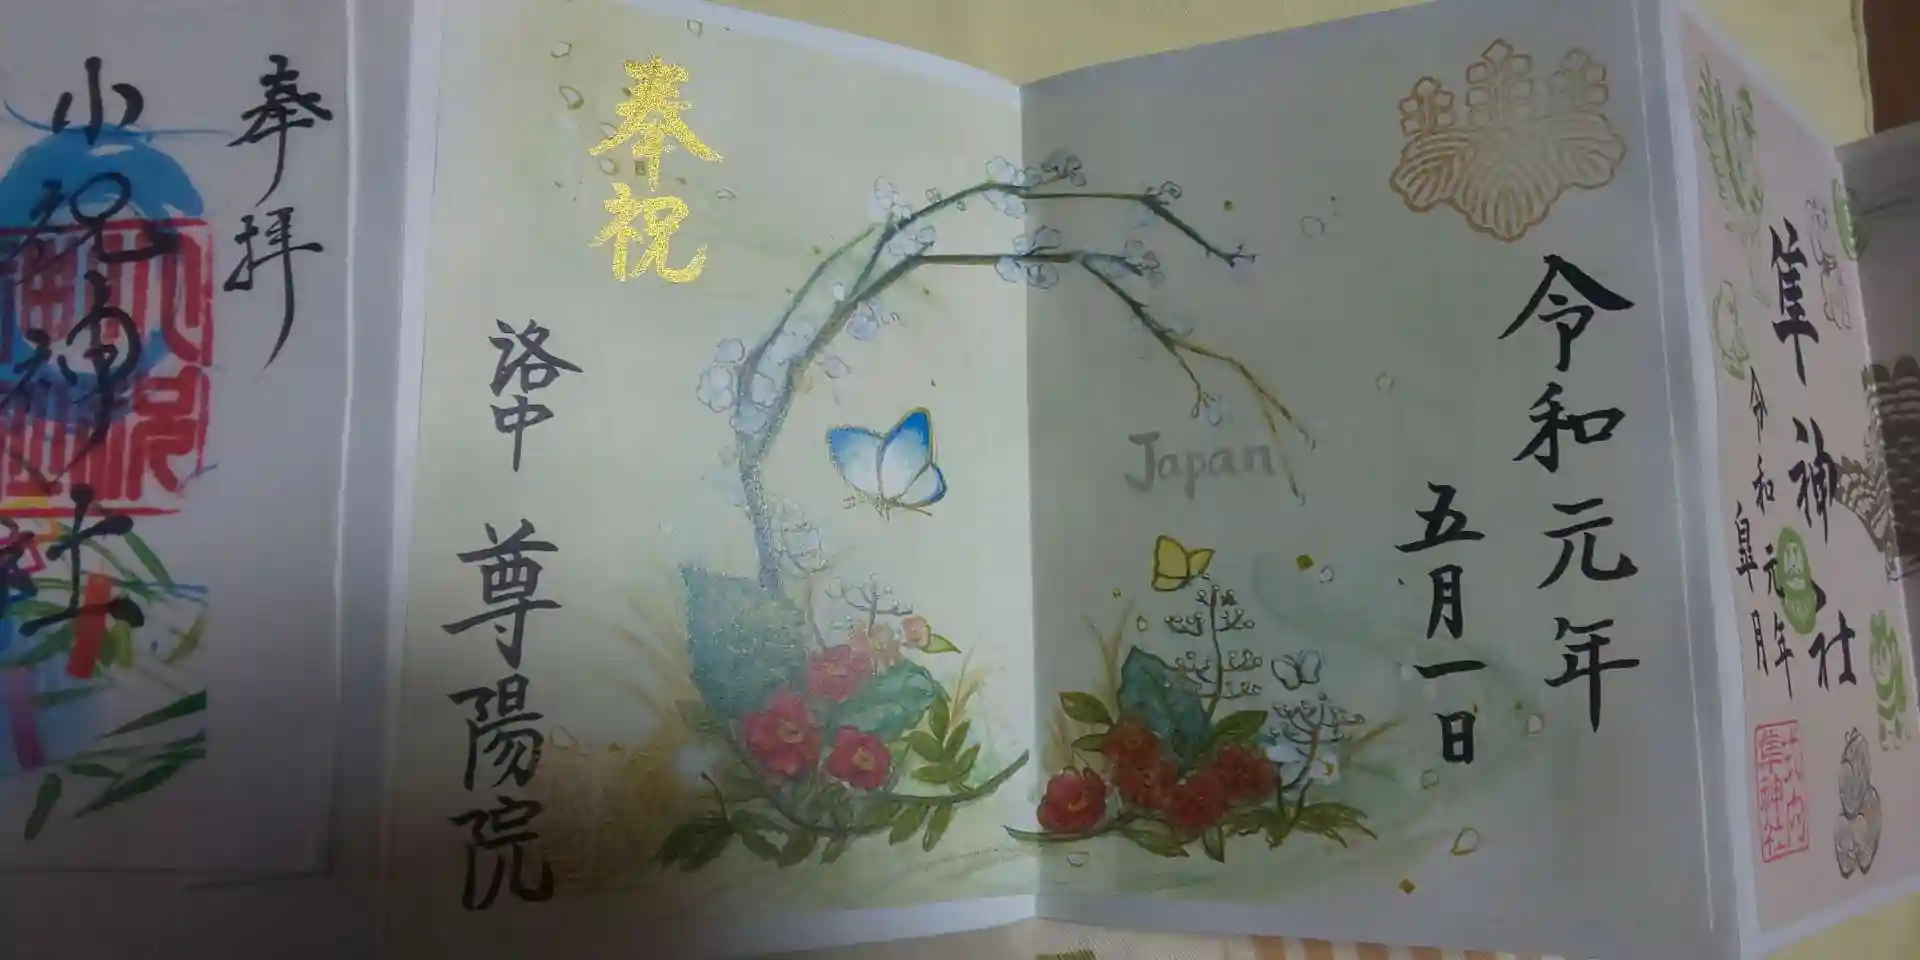 隼神社
令和元年
皐月
元内
隼神社
令和元年
五月一日
Japan
奉祝
洛中
尊陽院
奉拝
小祝神社